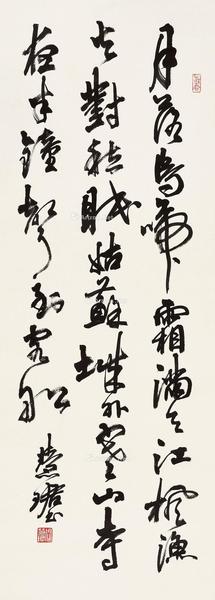 月落烏啼霜滿天江楓漁
火對愁眠姑蘇城外寒山寺
夜半鐘聲到客船
慧珺